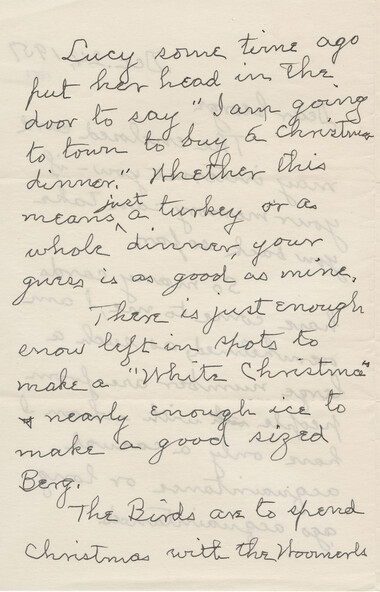 Lucy some time ago
put her head in the
door to say "I am going
to town to buy a Christmas
dinner." Whether this
means just a turkey or a
whole dinner, your
guess is as good as mine.
There is just enough
snow left in spots to
make a "White Christmas"
& nearly enough ice to
make a good sized
Berg.
The Birds are to spend
Christmas with the